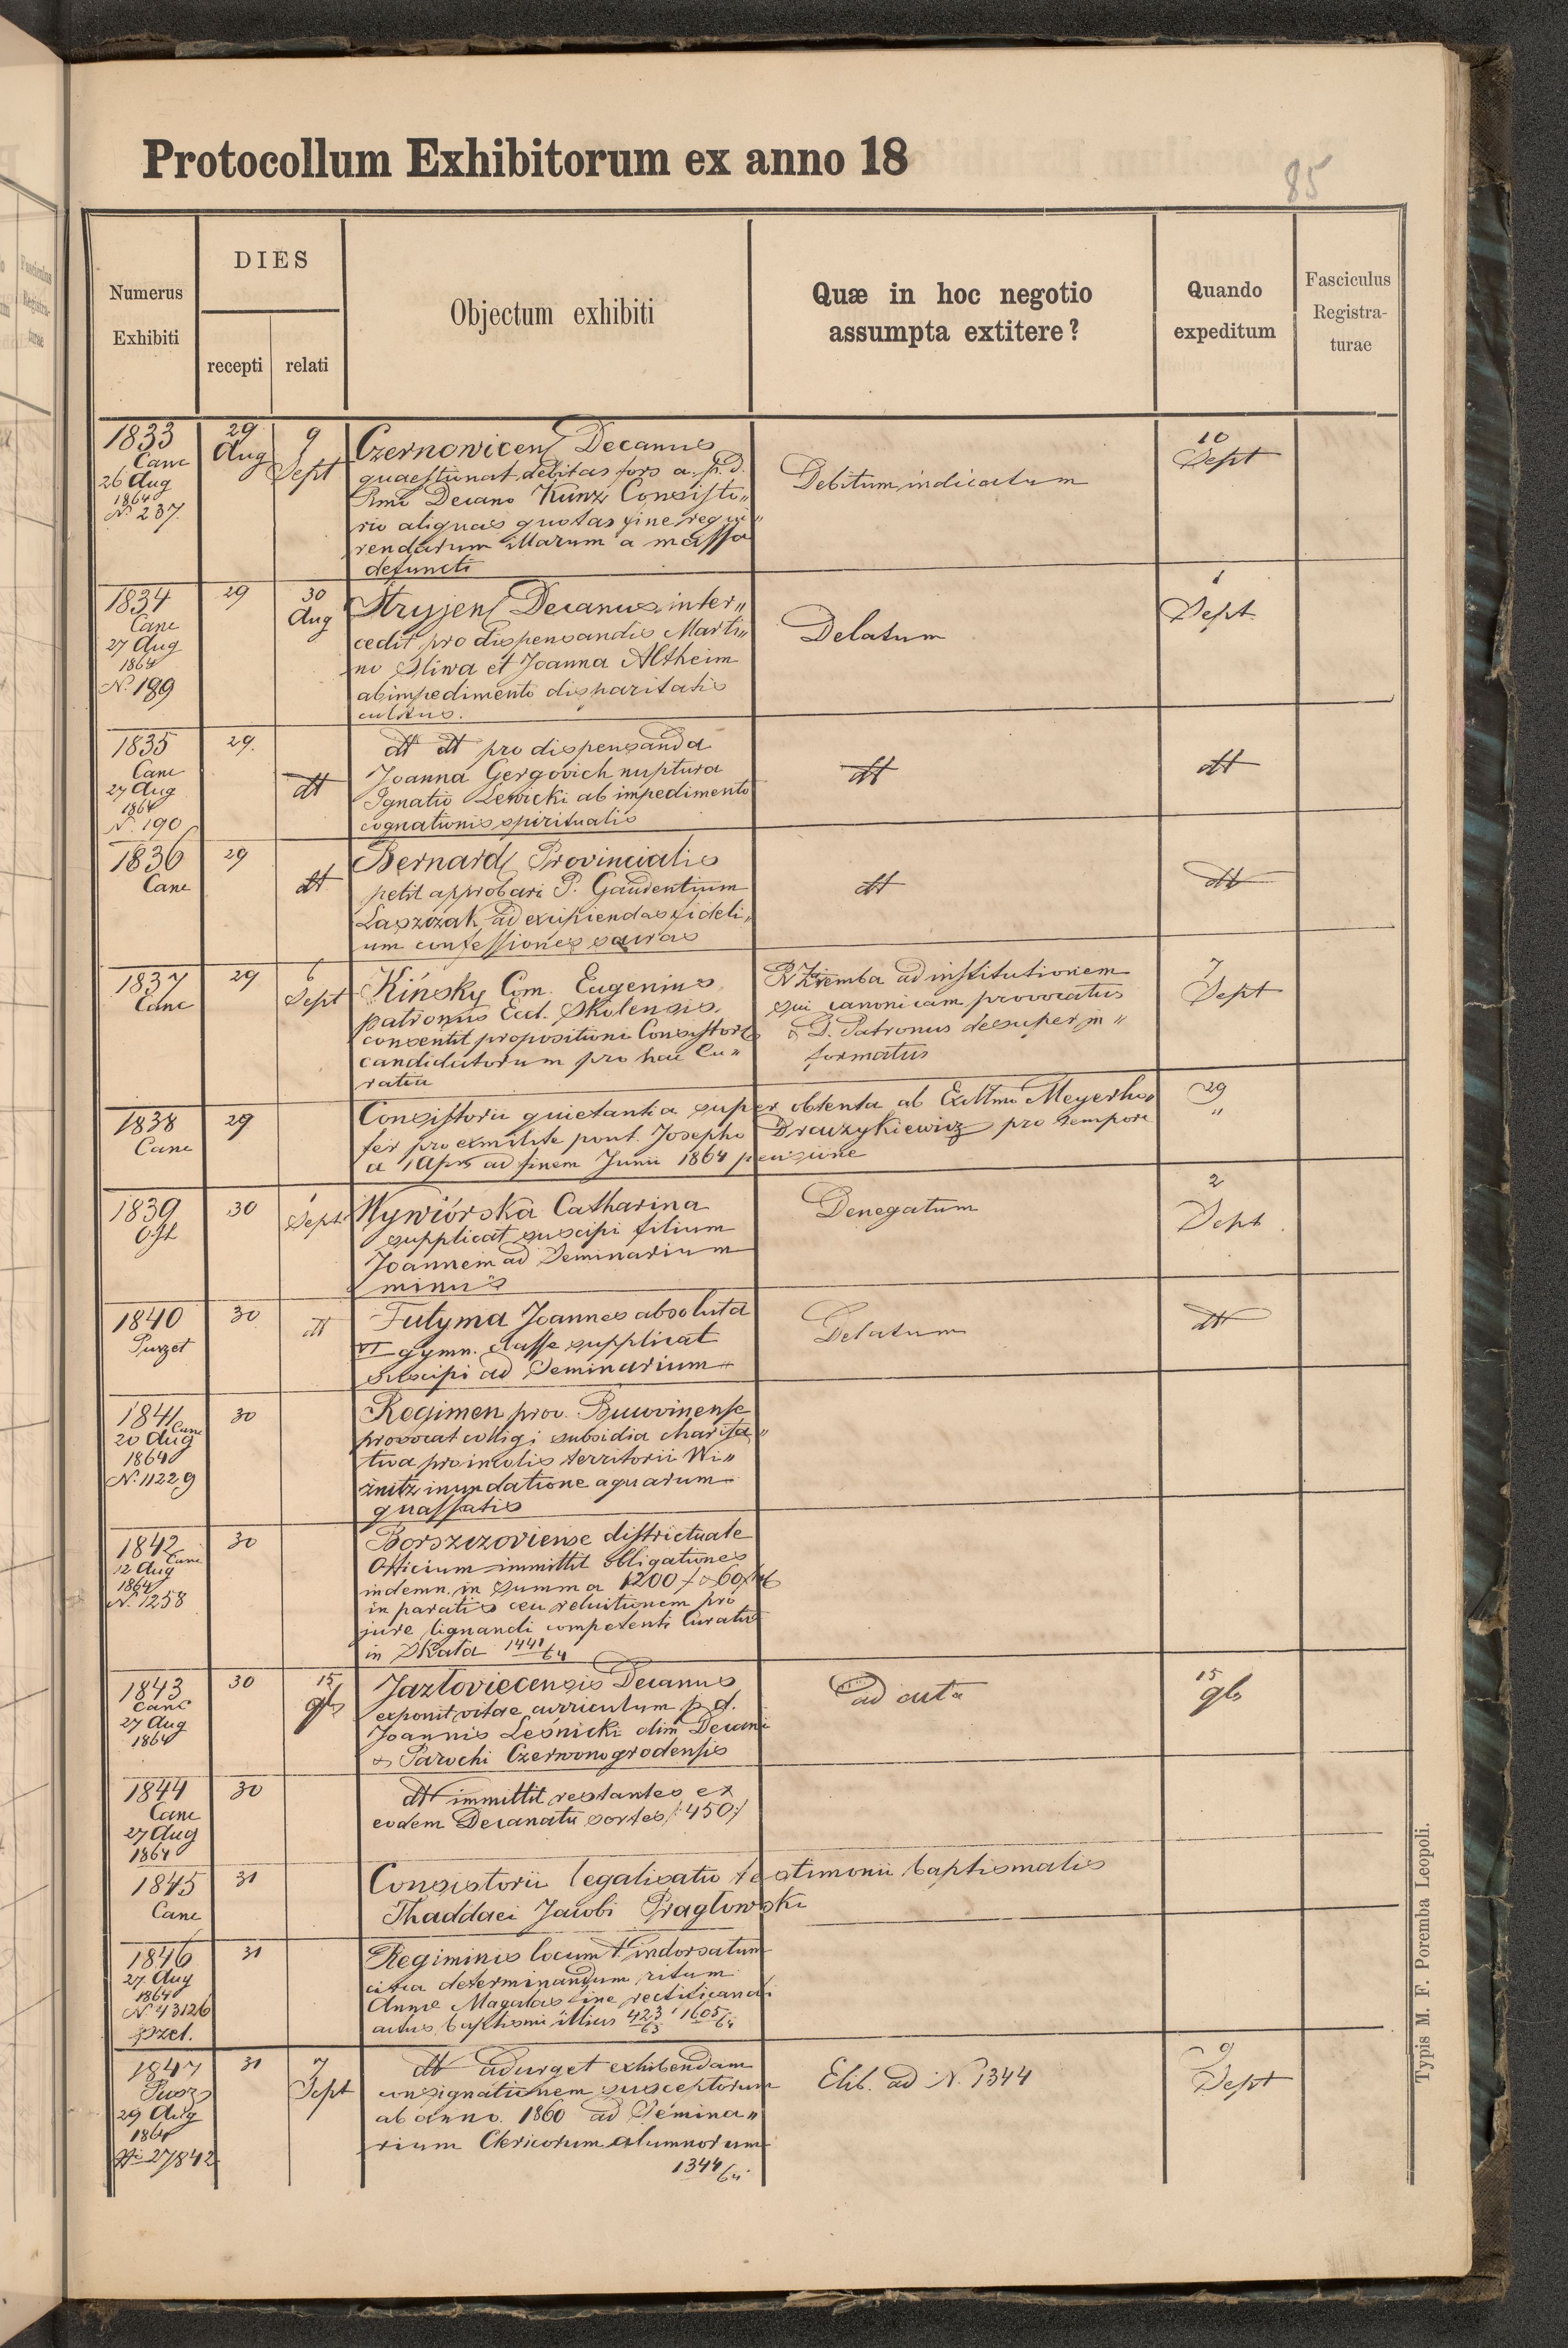 Protocollum Exhibitorum ex anno 18
85
Numerus Exhibiti
DIES
recepti
relati
Objectum exhibiti
Quæ in hoc negotio
assumpta extitere?
Quando
expeditum
Fasciculus
Registra-
turae
1833
Canc
26 Aug
1864
N. 237.
29
Aug
9
Sept
Czernowicen Decanus
quaestunat debitas fors a. p. d.
Rmo Decano Kunz Consisto„
rio aliquas quotas fine requi„
rendarum illarum a massa
defuncti
Debitum indicatum
10
Sept
1834
Canc
27 Aug
1864
N. 189
29
30
Aug
Stryjen Decanus inter„
cedit pro dispensandis Marti„
no Sliwa et Joanna Altheim
ab impedimento disparitatis
cultus.
Delatum
1
Sept
1835
Canc
27 Aug
1864
N. 190
29.
dt
dt dt pro dispensanda
Joanna Gergovich nuptura
Ignatio Lewicki ab impedimento
cognationis spiritualis
dt
dt
1836
Canc
29
dt
Bernard Provincialis
petit approbari P. Gaudentium
Laszczak ad excipiendas fideli„
um confessiones sacras
dt
dt
1837
Canc
29
6
Sept
Kinsky Com. Eugenius
patronus Eccl. Skolensis
consentit propositioni Consistor
candidatorum pro hac Cu„
ratia
Ziemba ad institutionem
sui canonicam provocatus
& D. Patronus desuper in„
formatus
7
Sept
1838
Canc
29
Consistorii quietantia super obtenta ab Exllmo Meyerho„
fer pro exmilite pont. Josepho Draczykiewicz pro tempore
a 1 Apr ad finem Junii 1864 pensione
29
„
1839
Off
30
1
Sept
Wywiórska Catharina
supplicat suscipi filium
Joannem ad Seminarium
minus
Denegatum
2
Sept
1840
Purzet
30
dt
Futyma Joannes absoluta
VI gymn. classe supplicat
suscipi ad Seminarium
Delatum
dt
1841
Canc
20 Aug
1864
N. 11229
30
Regimen prov. Bucovinense
provocat colligi subsidia charita„
tiva pro incolis territorii Wi„
żnitz inundatione aquarum
quassatis
1842
Canc
12 Aug
1864
N. 1258
30
Borszczoviense districtuale
Officium immittit obligationes
indemn. in summa 1200 f & 60
in paratis ceu reluitionem pro
jure lignandi competenti Curato
in Skala 1441/64
1843
Canc
27 Aug
1864
30
15
gb
Jazłoviecensis Decanus
exponit vitae curriculum p. d.
Joannis Leśnicki olim Decani
& Parochi Czerwonogrodensis
ad acta
15
gb
1844
Canc
27 Aug
1864
30
dt immittit restantes ex
eodem Decanatu sortes /:450:/
1845
Canc
31
Consistorii legalisatio testimonii baptismalis
Thaddaei Jacobi Pragłowski
1846
27 Aug
1864
N 43126
pzet.
31
Regiminis locumt. indorsatum
circa determinandum ritum
Annae Magalas fine rectificandi
actus baptismi illius 423/63 1605/64
1847
29 Aug
1864
N. 27842
31
7
Sept
dt adurget exhibendam
consignationem susceptorum
ab anno 1860 ad Semina„
rium Clericorum alumnorum
1344/64.
Elib. ad N. 1344
9
Sept
Typis M. F. Poremba Leopoli.